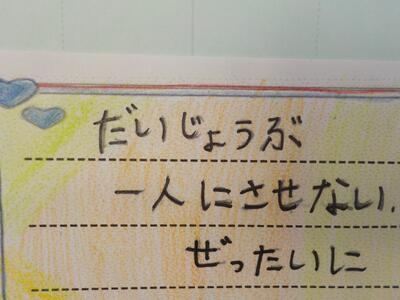 だいじょうぶ
一人にさせない.
ぜったいに